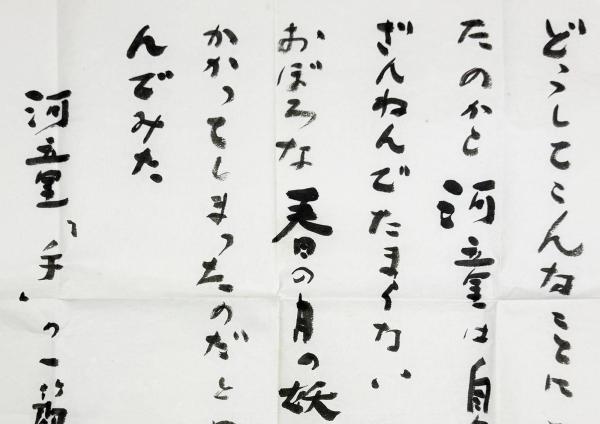 どうしてこんなことに
たのかと河童は自
ざんねんでたまらない
おぼろな春の月の妖
かかってしまったのだと
んでみた
河童「手」の一節